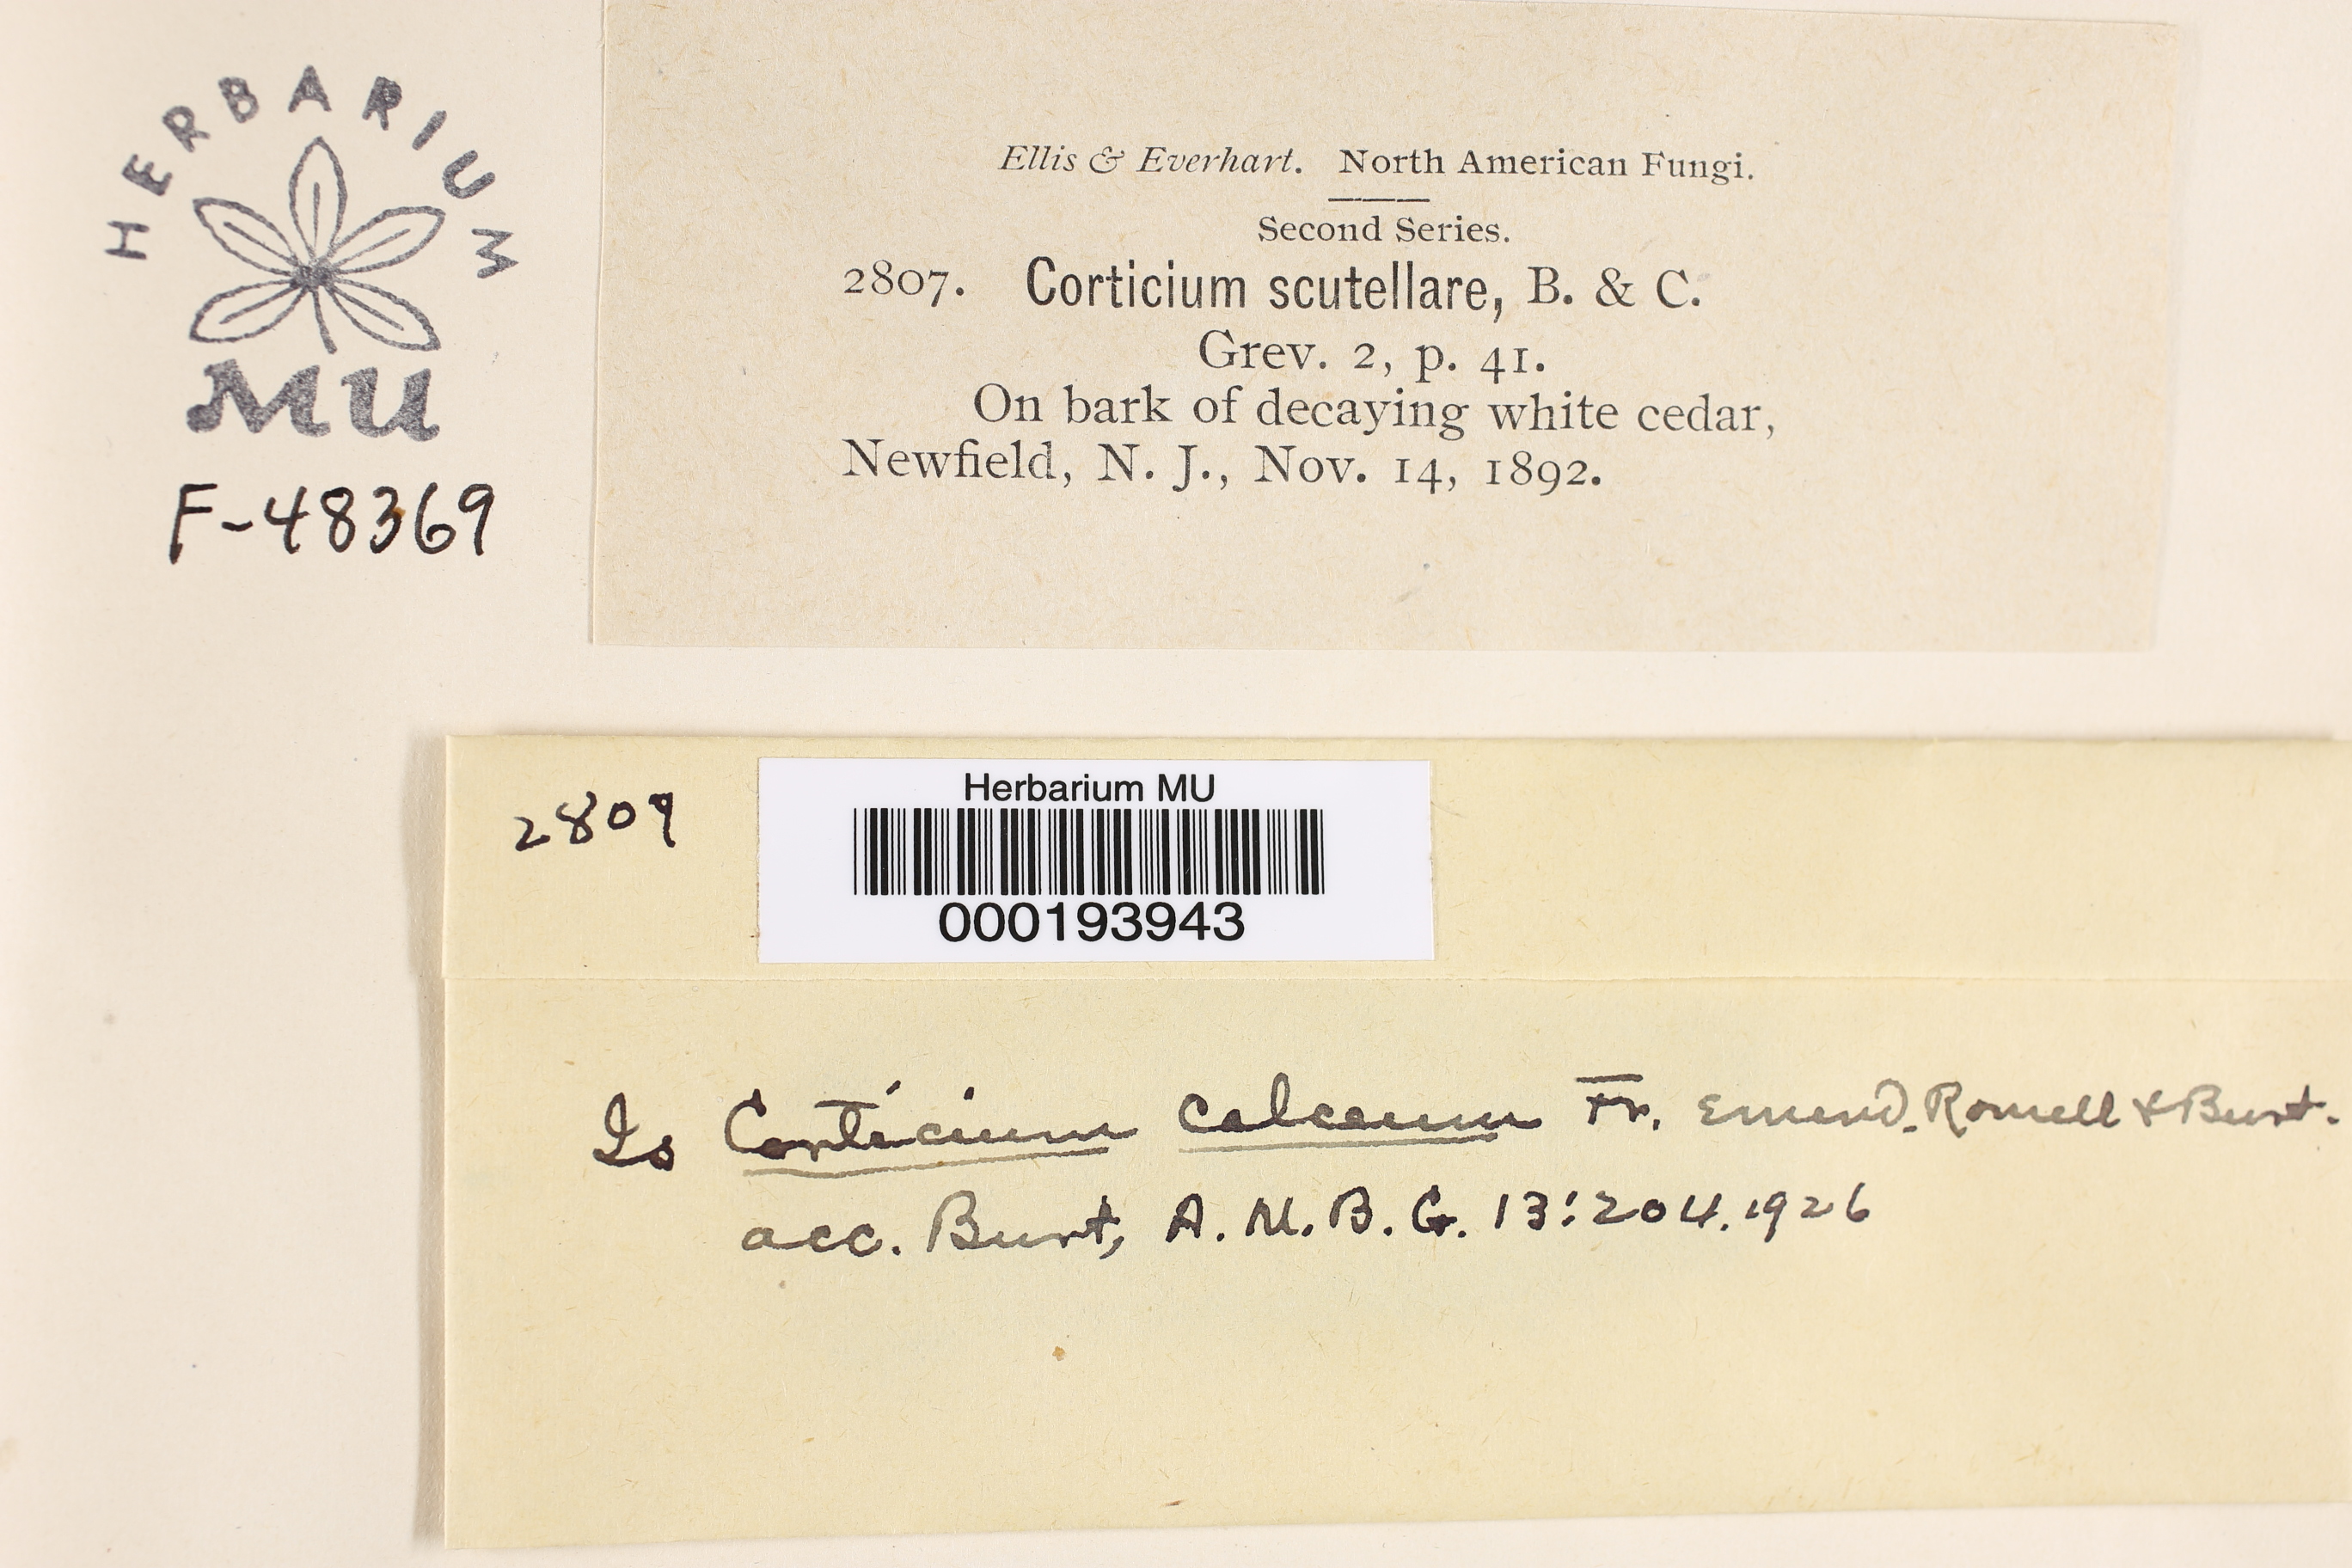 HERBARIUM
MU
F-48369
Ellis & Everhart. North American Fungi.
Second Series.
2807. Corticium scutellare, B. & C.
Grev. 2, p. 41.
On bark of decaying white cedar,
Newfield, N. J., Nov. 14, 1892.
2807
Herbarium MU
000193943
Is Corticium calceum Fr. Emend. Romell & Burt.
acc. Burt, A. M. B. G. 13:204. 1926